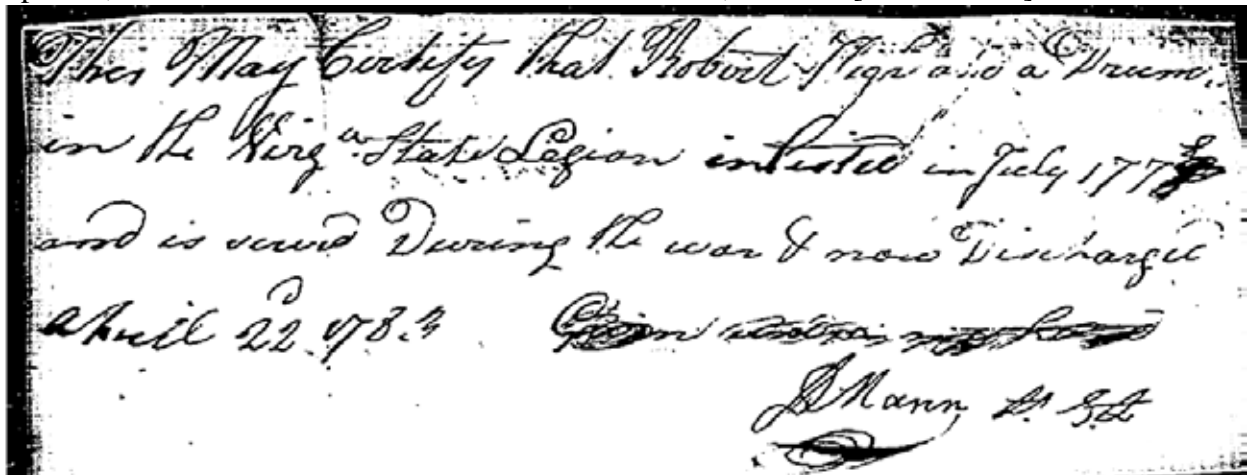 This May Certify that Robert a Drum.
in the Virg.a State Legion inlisted in July 177
and is servd During the war & now Discharged
April 22d 1783
Mann